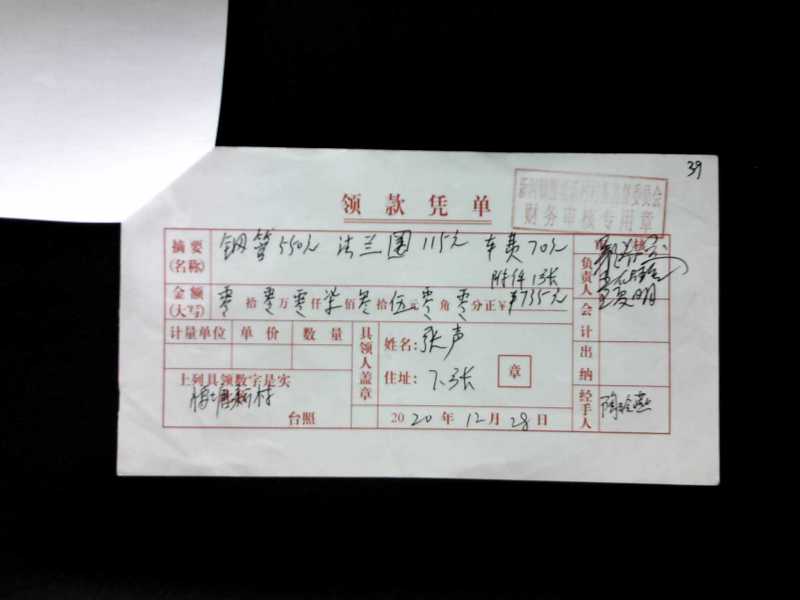 39
财务审核专用章
领款凭单
摘要(名称) 钢管550元 法兰圈 115元 车费70元
附件1张
金额(大写) 零拾零万零仟柒佰叁拾伍元零角零分正¥ ¥735元
计量单位 单价 数量
上列具领数字是实
新村
台照
具领人盖章
姓名: 张声
住址: 下张
章
2020年12月28日
负责人
会计
出纳
经手人